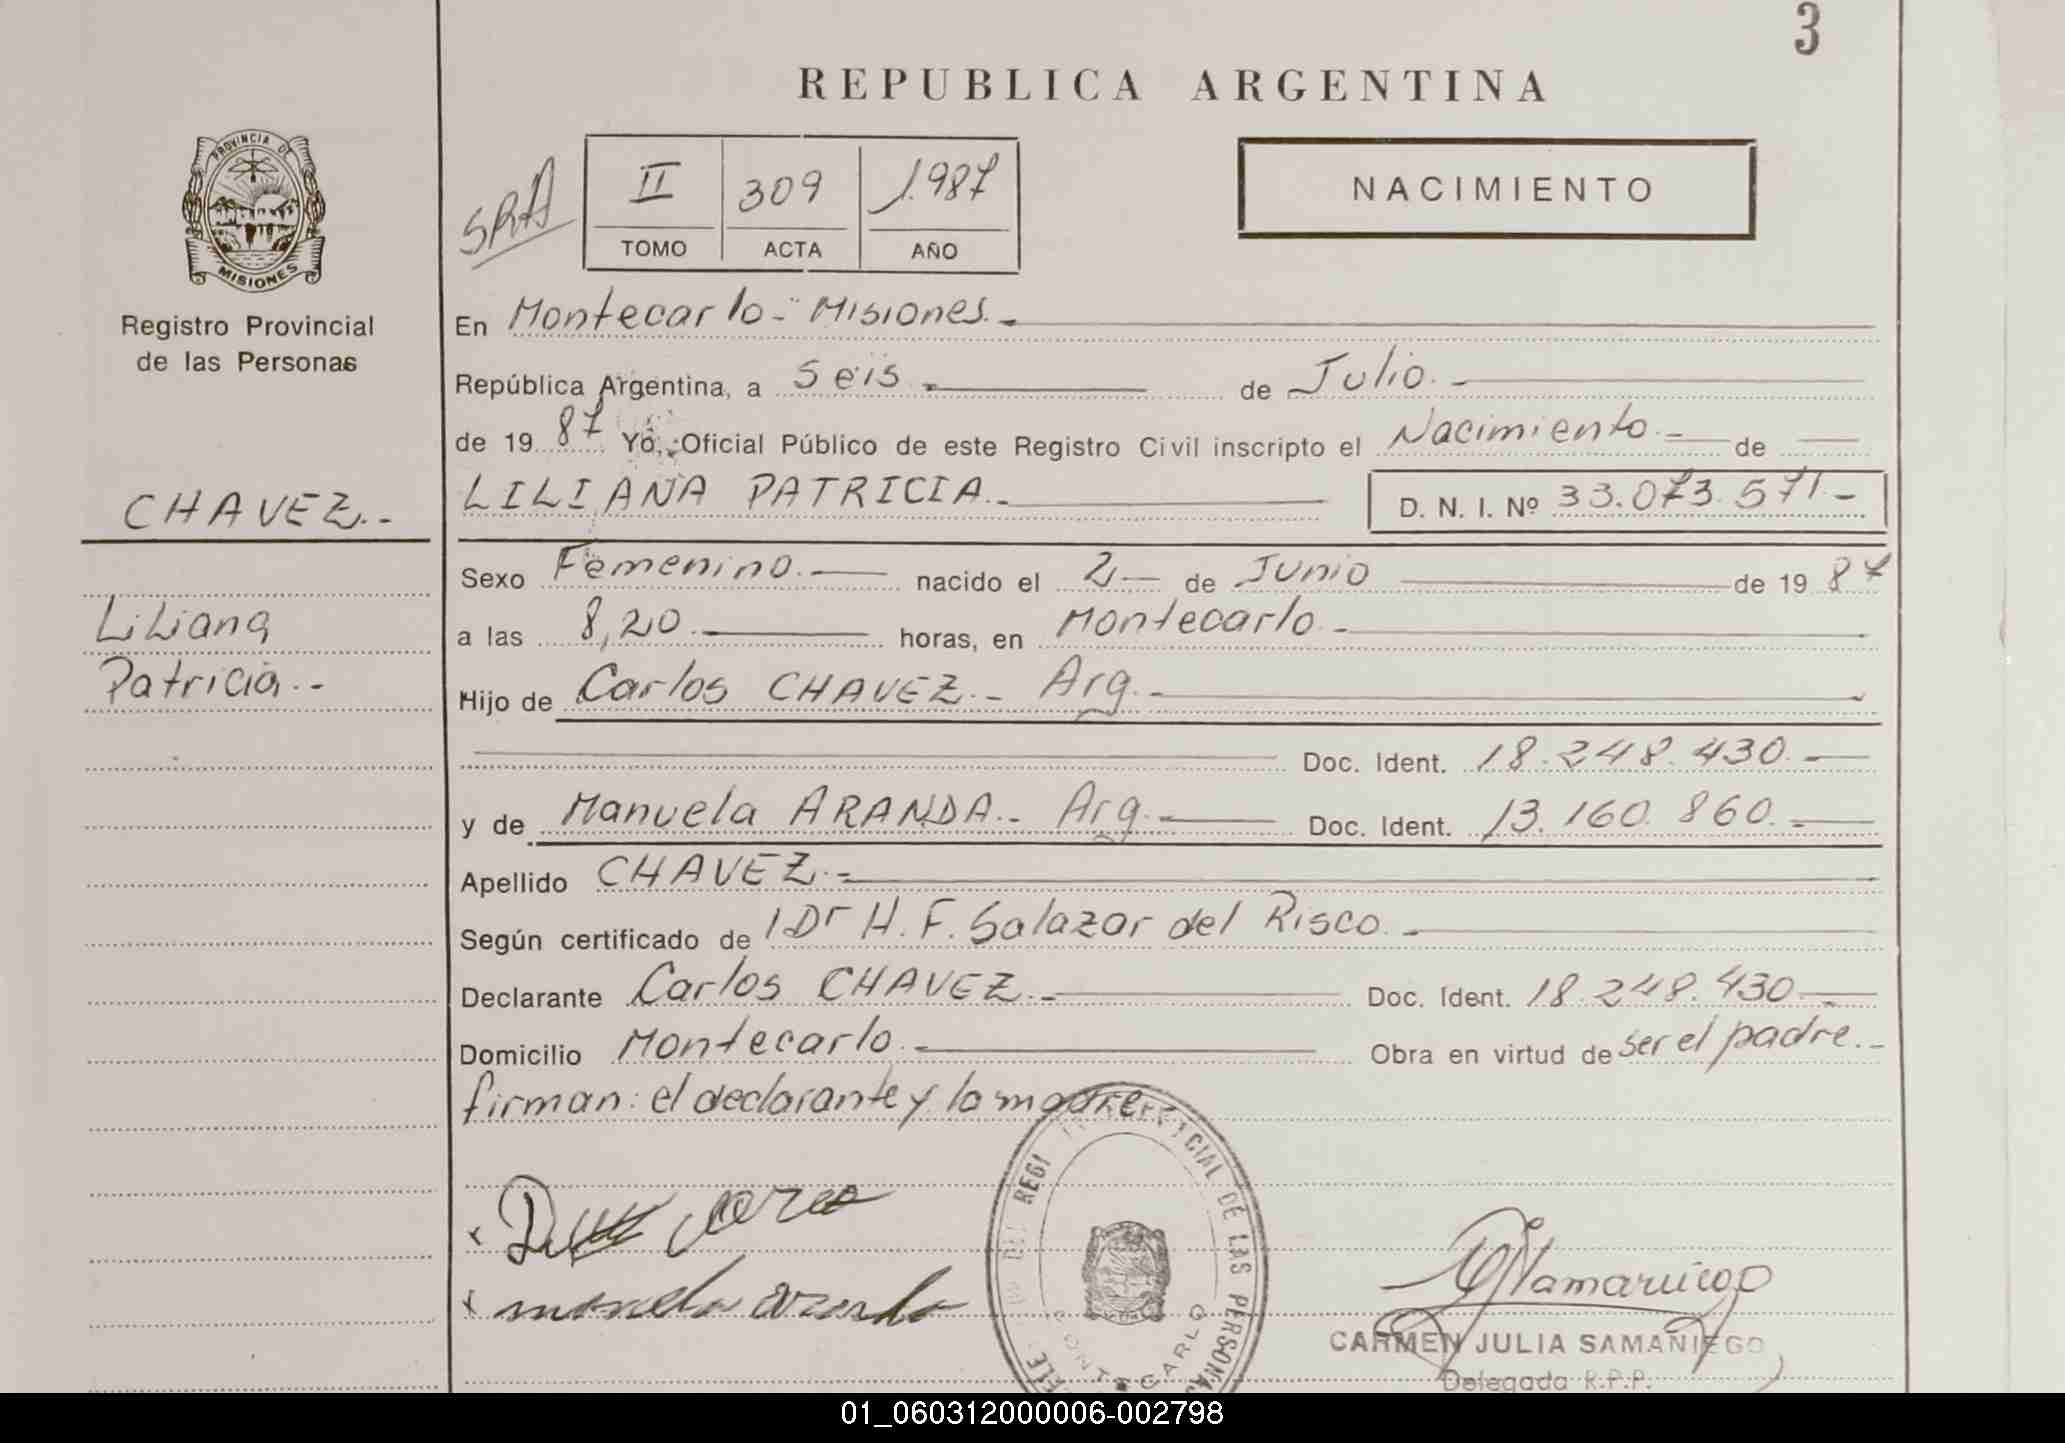 3
REPUBLICA ARGENTINA
PROVINCIA DE
MISIONES
Registro Provincial
de las Personas
SRA
II 309 1.987
TOMO ACTA AÑO
NACIMIENTO
En Montecarlo - Misiones.-
República Argentina, a Seis.- de Julio.-
de 19 87 Yo, Oficial Público de este Registro Civil inscripto el Nacimiento.- de
CHAVEZ.-
LILIANA PATRICIA.- D. N. I. Nº 33.073.571.-
Sexo Femenino.- nacido el 2 - de Junio de 19 87
Liliana
a las 8,20.- horas, en Montecarlo.-
Patricia.-
Hijo de Carlos CHAVEZ.- Arg.-
Doc. Ident. 18.248.430.-
y de Manuela ARANDA.- Arg.- Doc. Ident. 13.160.860.-
Apellido CHAVEZ.-
Según certificado de Dr H. F. Salazar del Risco.-
Declarante Carlos CHAVEZ.- Doc. Ident. 18.248.430.-
Domicilio Montecarlo.- Obra en virtud de ser el padre.-
firman: el declarante y la madre
x
x manuela aranda
DE LAS PERSONAS
MONTECARLO
CARMEN JULIA SAMAÑIEGO
Delegada R.P.P.
01_060312000006-002798